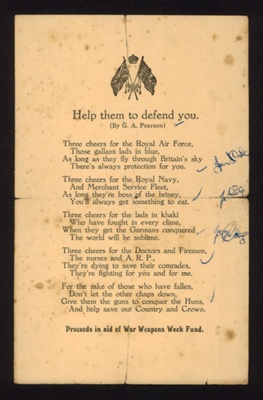 Help them to defend you.
(By G. A. Pearson)
Three cheers for the Royal Air Force,
Those gallant lads in blue,
As long as they fly through Britain's sky
There's always protection for you.
Three cheers for the Royal Navy,
And Merchant Service Fleet,
As long as they're boss of the briney,
You'll always get something to eat.
Three cheers for the lads in khaki
Who have fought in every clime,
When they get the Germans conquered
The world will be sublime.
Three cheers for the Doctors and Firemen,
The nurses and A. R. P.,
They're dying to save their comrades,
They're fighting for you and for me.
For the sake of those who have fallen,
Don't let the other chaps down,
Give them the guns to conquer the Huns,
And help save our Country and Crown.
Proceeds in aid of War Weapons Week Fund.